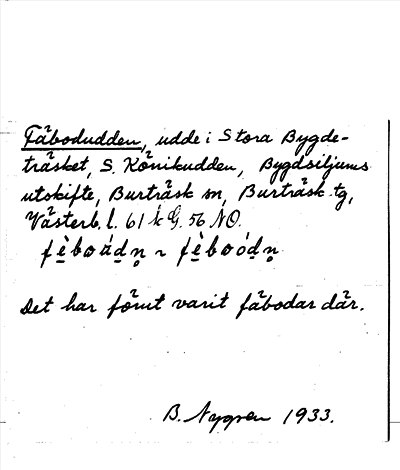 Fäbodudden, udde i Stora Bygde-
träsket, S. Könikudden, Bygdsiljums
utskifte, Burträsk sn, Burträsk tg,
Västerb. l. 61 k G. 56 NO.
fèboádn̥ ~ fèboódn̥
Det har förut varit fäbodar där.
B. Nygren 1933.